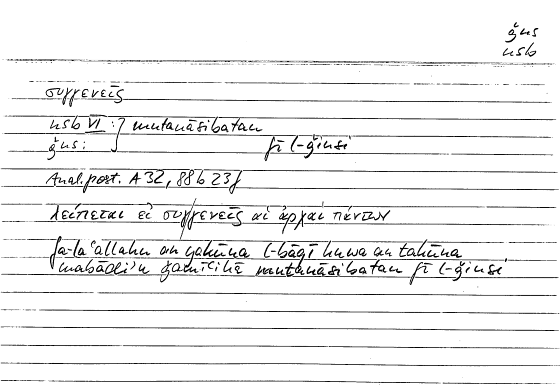 ǧns
nsb
συγγενεῖς
nsb VI : } mutanāsibatan
ǧns : fī l-ǧinsi
Anal. post. A 32, 88 b 23f
λείπεται εἰ συγγενεῖς αἱ ἀρχαὶ πάντων
fa-laʿallahu an yakūna l-bāqī huwa an takūna
mabādiʾu ǧamīʿihā mutanāsibatan fī l-ǧinsi